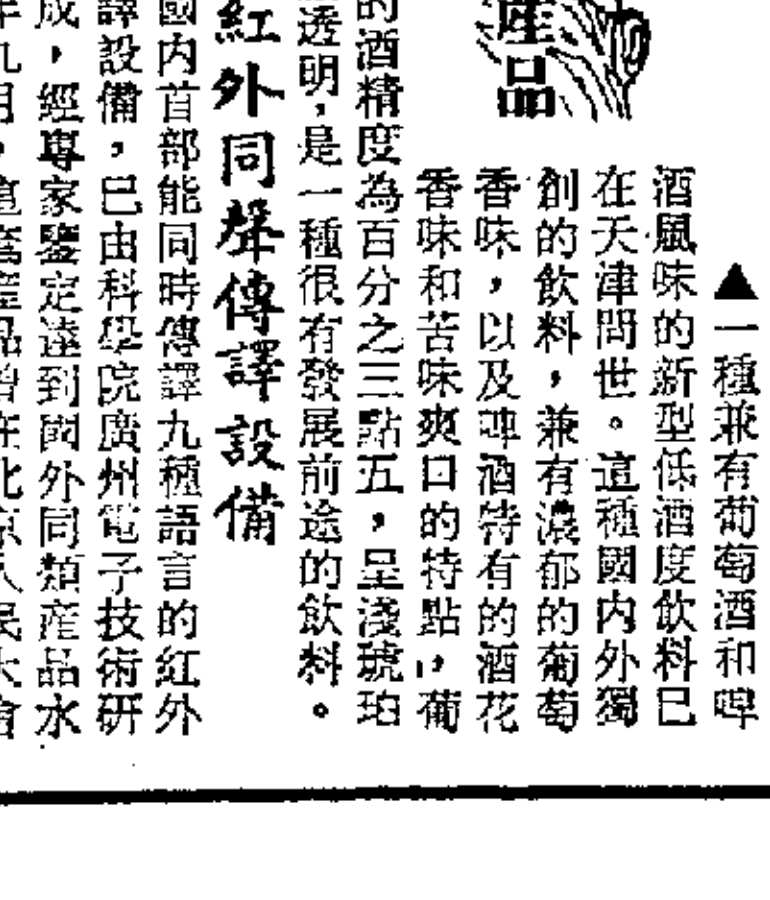 產品
▲一種兼有葡萄酒和啤
酒風味的新型低酒度飲料已
在天津問世。這種國內外獨
創的飲料，兼有濃郁的葡萄
香味，以及啤酒特有的酒花
香味和苦味爽口的特點，葡
的酒精度為百分之三點五，呈淺琥珀
透明，是一種很有發展前途的飲料。
紅外同聲傳譯設備
國內首部能同時傳譯九種語言的紅外
譯設備，已由科學院廣州電子技術研
成，經專家鑒定達到國外同類産品水
年九月，這套産品曾在北京人民大會